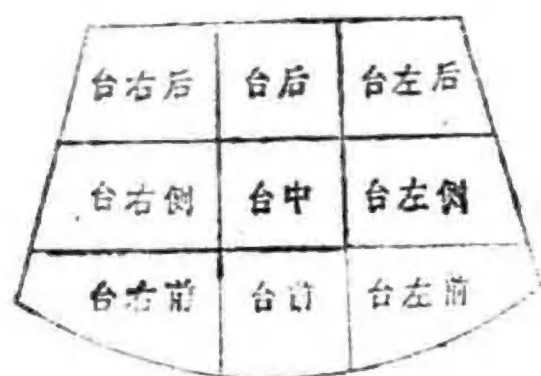 台右后 台后 台左后
台右侧 台中 台左侧
台右前 台前 台左前